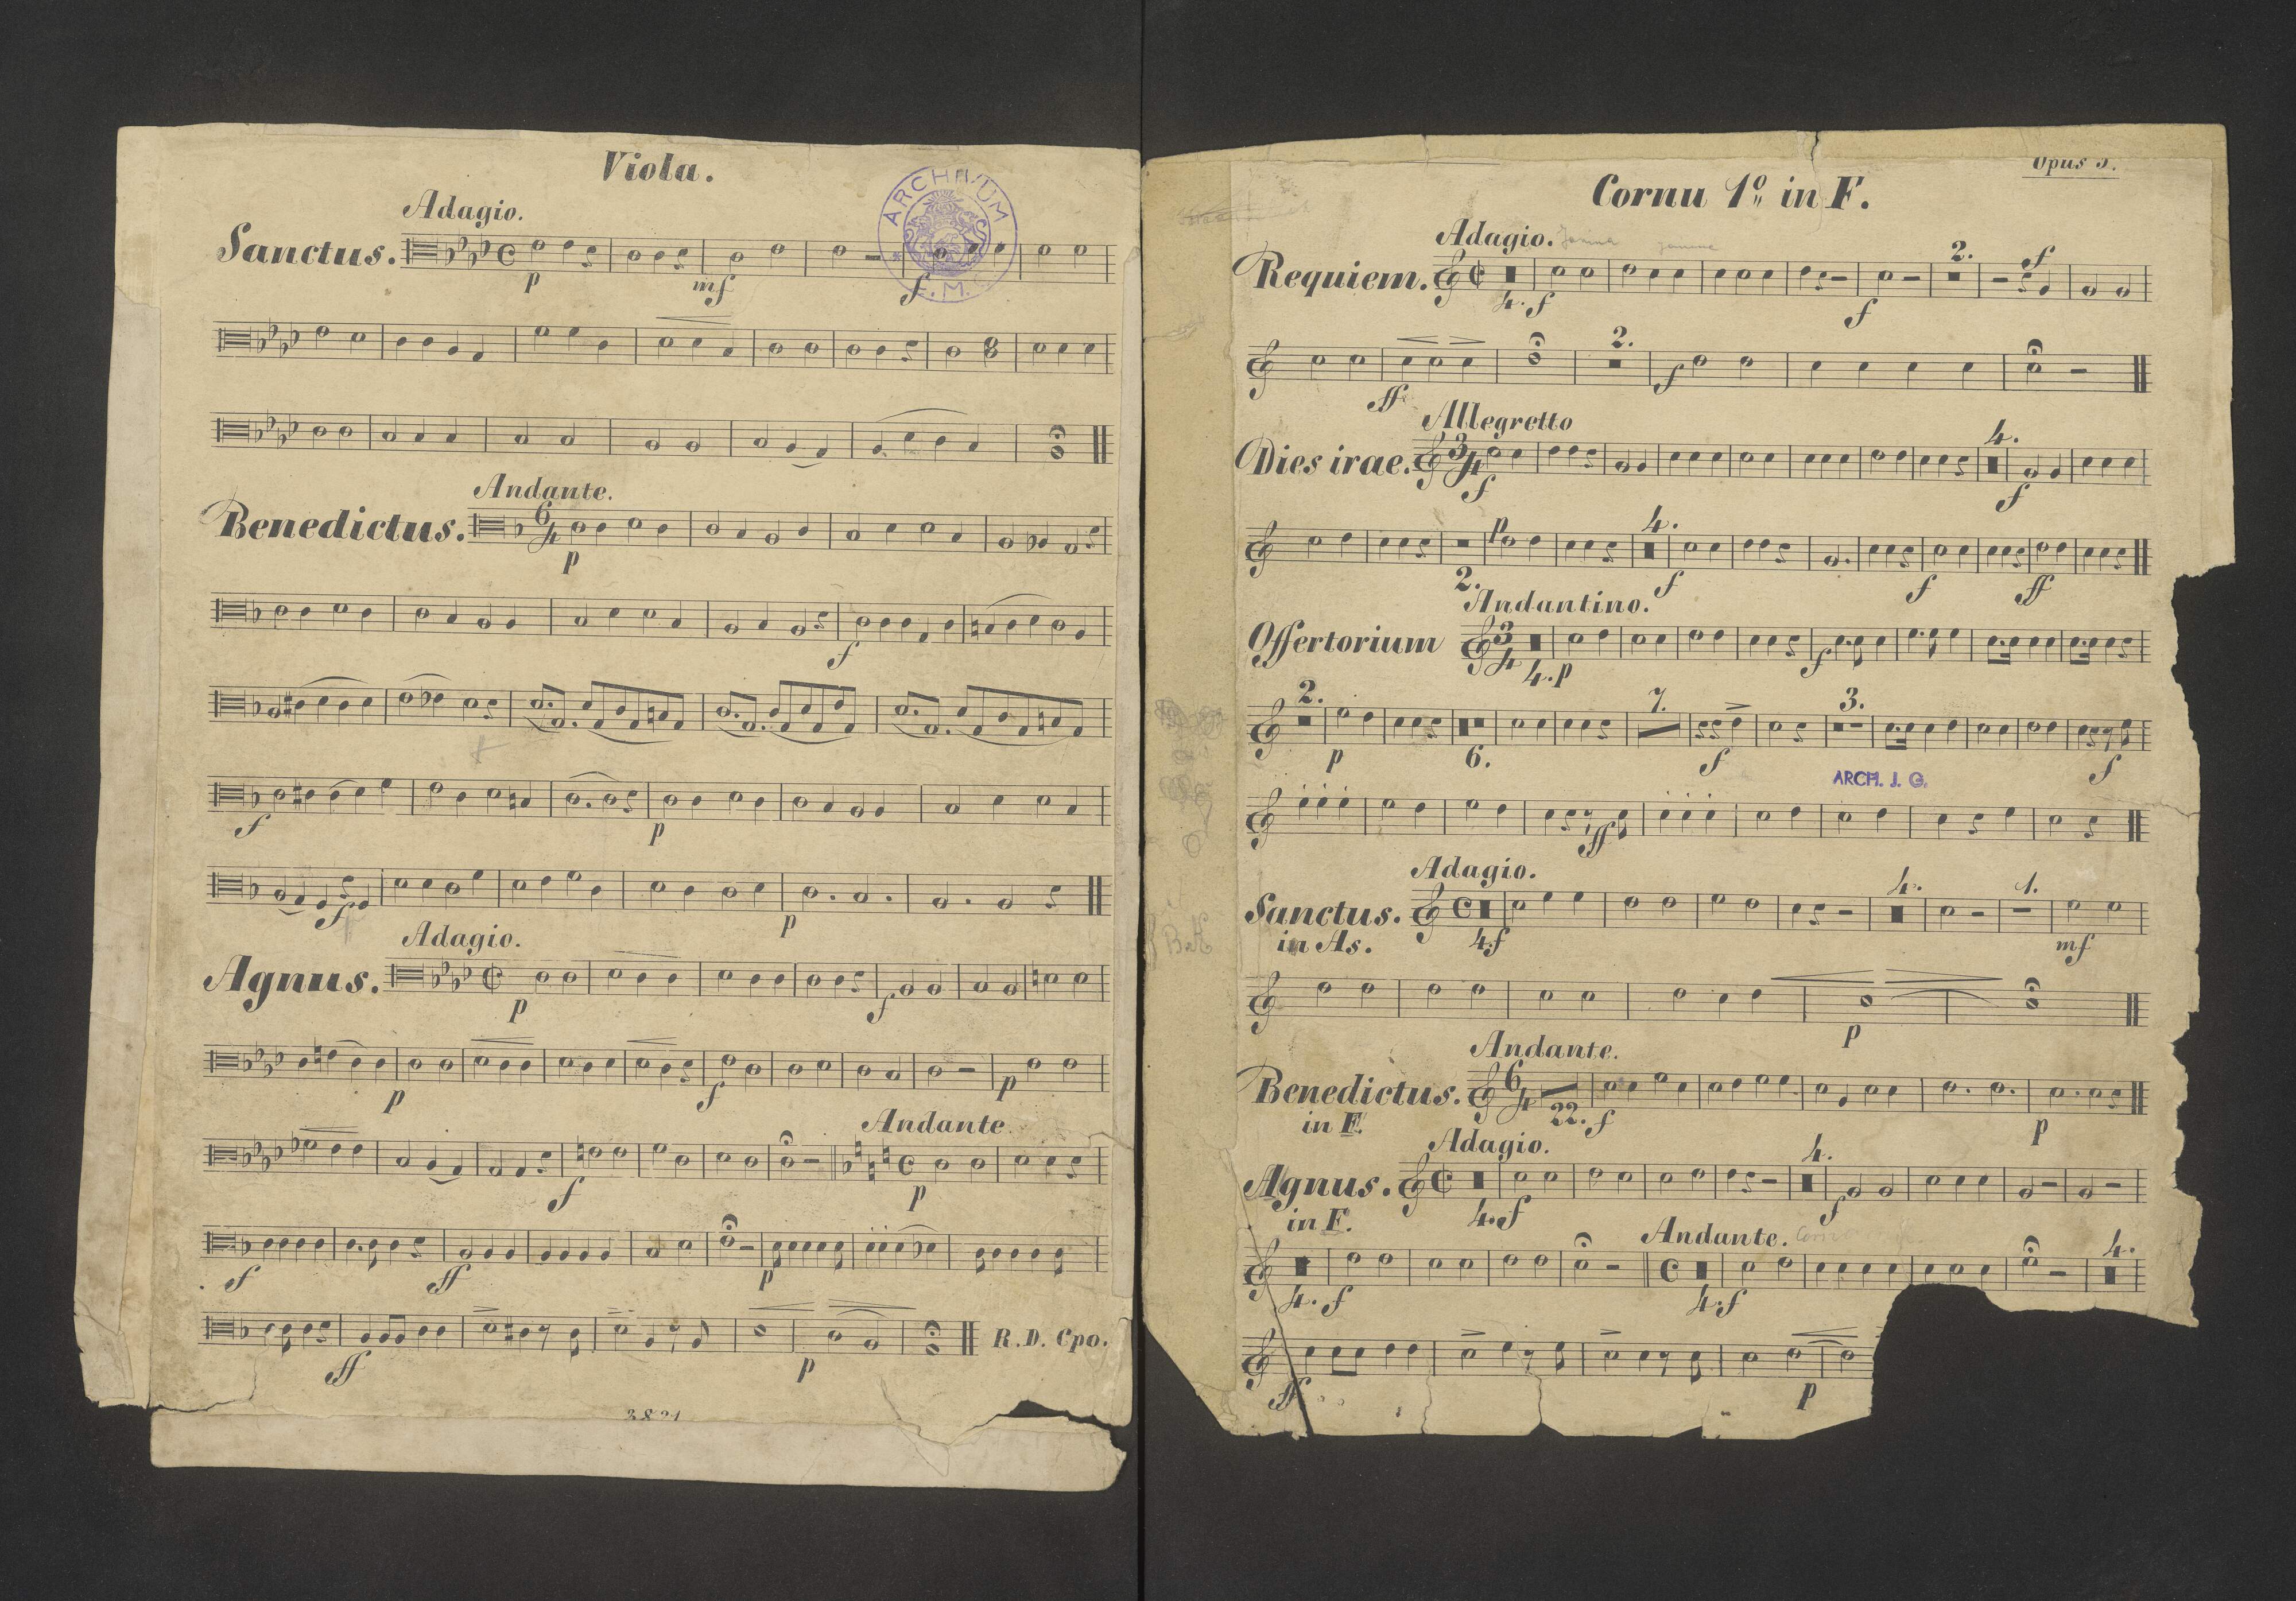 Viola.
ARCHIVUM
Adagio.
Sanctus. p mf f
Andante.
Benedictus. 6 4 p
f
f p
f p
Adagio.
Agnus. p f
p f p
Andante
f p
f ff p
ff p R.D. Cpo.
Opus 5.
Cornu 1º in F.
Adagio.
Requiem. 4. f f 2. f
ff 2. f
Allegretto
Dies irae. 3 4 f 4. f
2. p 4. f f ff
Andantino.
Offertorium 3 4 4. p f
2. p 6. 7. f 3. f
ARCH. J. G.
ff
Adagio.
Sanctus. 4. f 4. 1. mf
in As.
p
Andante.
Benedictus. 6 4 22. f p
in F.
Adagio.
Agnus. 4. f 4. f
in F.
Andante.
4. f 4. f 4.
ff p